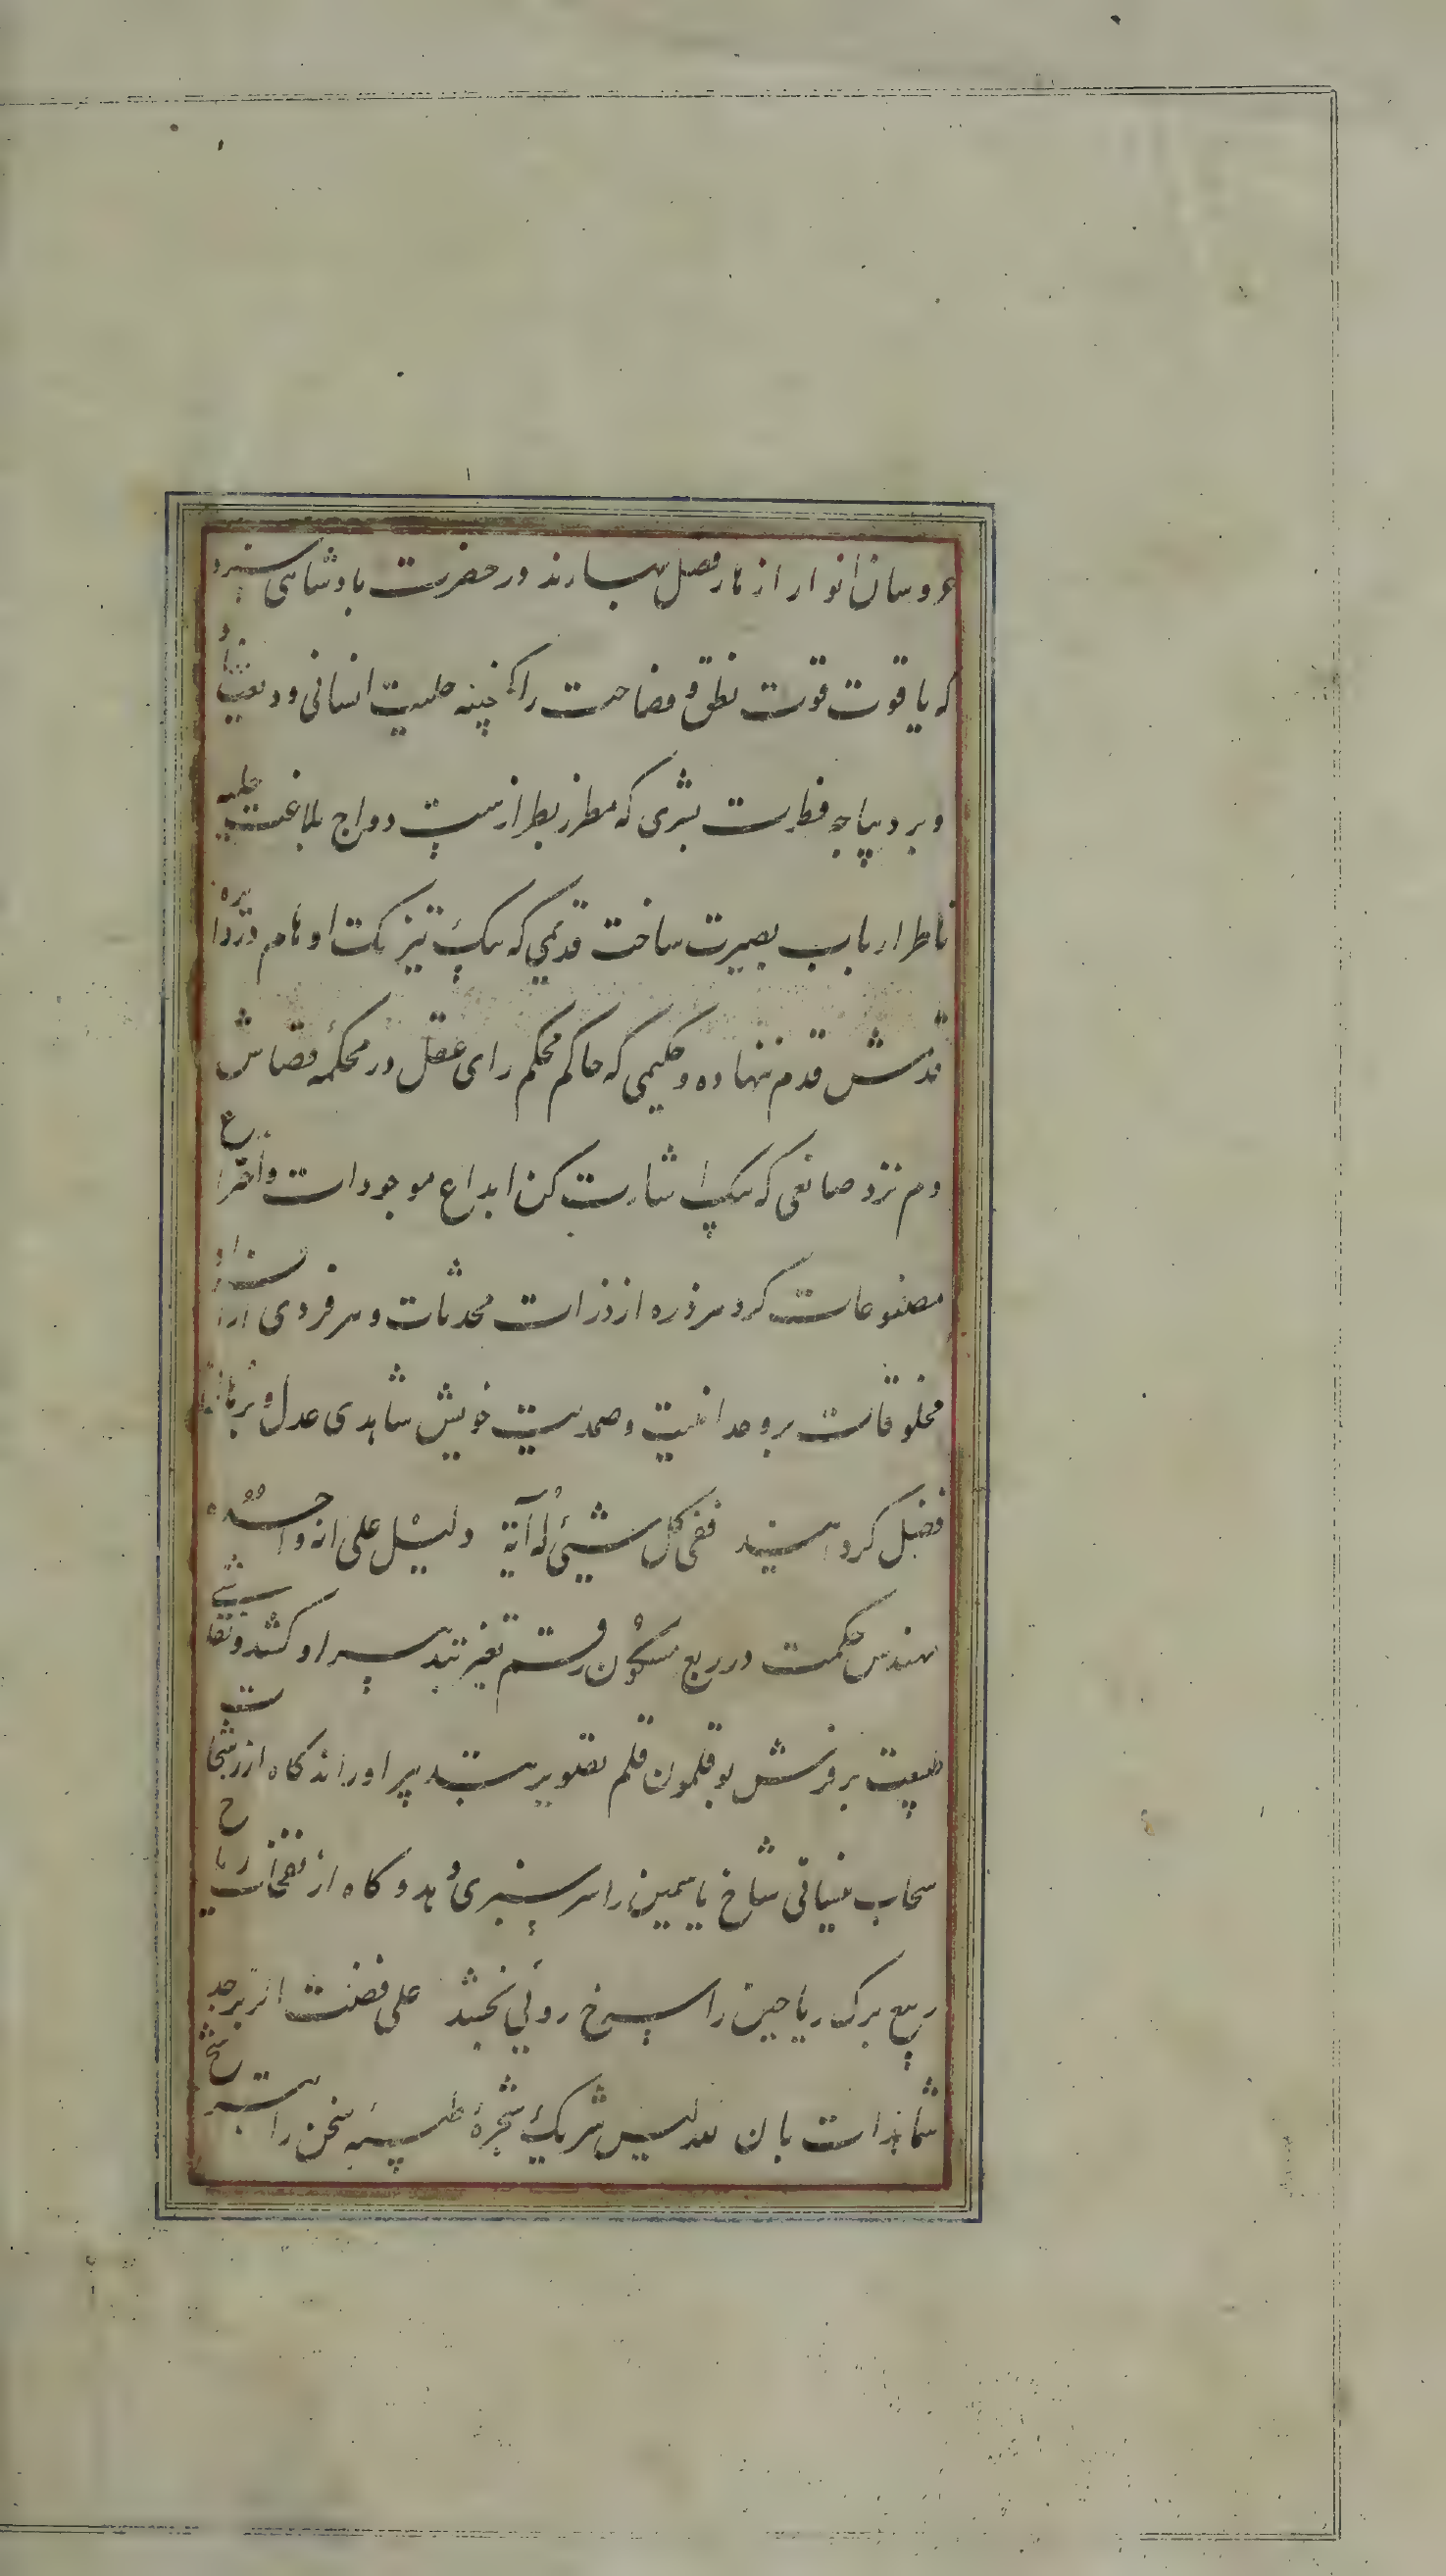 عروسان انوار ازهار فصل بهارند در حضرت پادشاهی سزد
که یاقوت قوت نطق و فصاحت را گنجینه طبیعت انسانی ودیعت نهاد و
و بر دیباچه فطرت بشری که مطرز بطرازست دواج بلاغت حلیه
ناظر ارباب بصیرت ساخت قدیمی که پیک تیز تک اوهام در دایره
قدمش قدم ننهاده و حکیمی که حاکم محکم رای عقل در محکمه قضاش
دم نزد صانعی که بیک اشارت کن ابداع موجودات و اختراع
مصنوعات کرد هر ذره از ذرات محدثات و هر فردی از افراد
مخلوقات بر وحدانیت و صمدیت خویش شاهدی عدل و برهانی
فضل کردانید ففی کل شیئ له آیة دلیل علی انه واحد
مهندس حکمت در ربع مسکون رقم تغیر بتدبیر او کشد و نقاش
طبیعت بر فرش بوقلمون قلم تصویر بتدبیر او راند کاه از رشحات
سحاب نیسانی شاخ یاسمین را سرسبزی دهد و کاه از نفحات ریاح
ربیع برک ریاحین را سرخ روئی بخشد علی قضب الزبرجد
شاهدات بان لیس شریک شجرهٔ طیبه سخن را